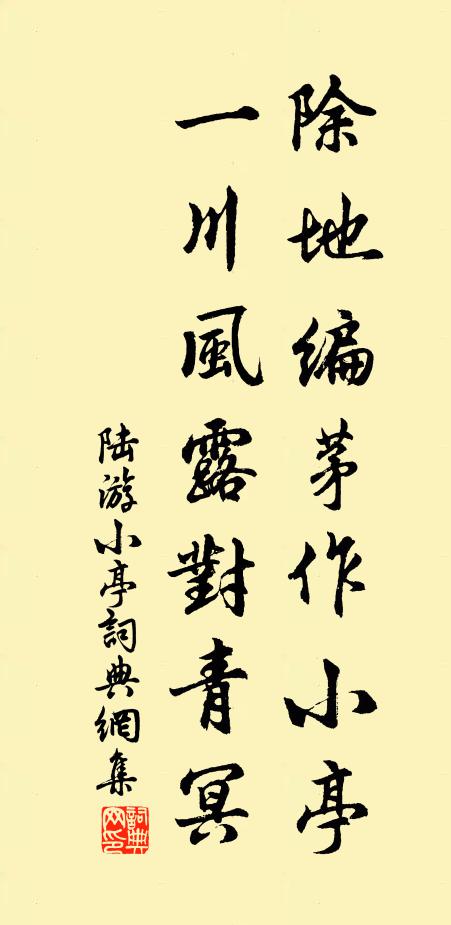 除地编茅作小亭
一川風露對青冥
陆游小亭詞典網集
詞典
网印